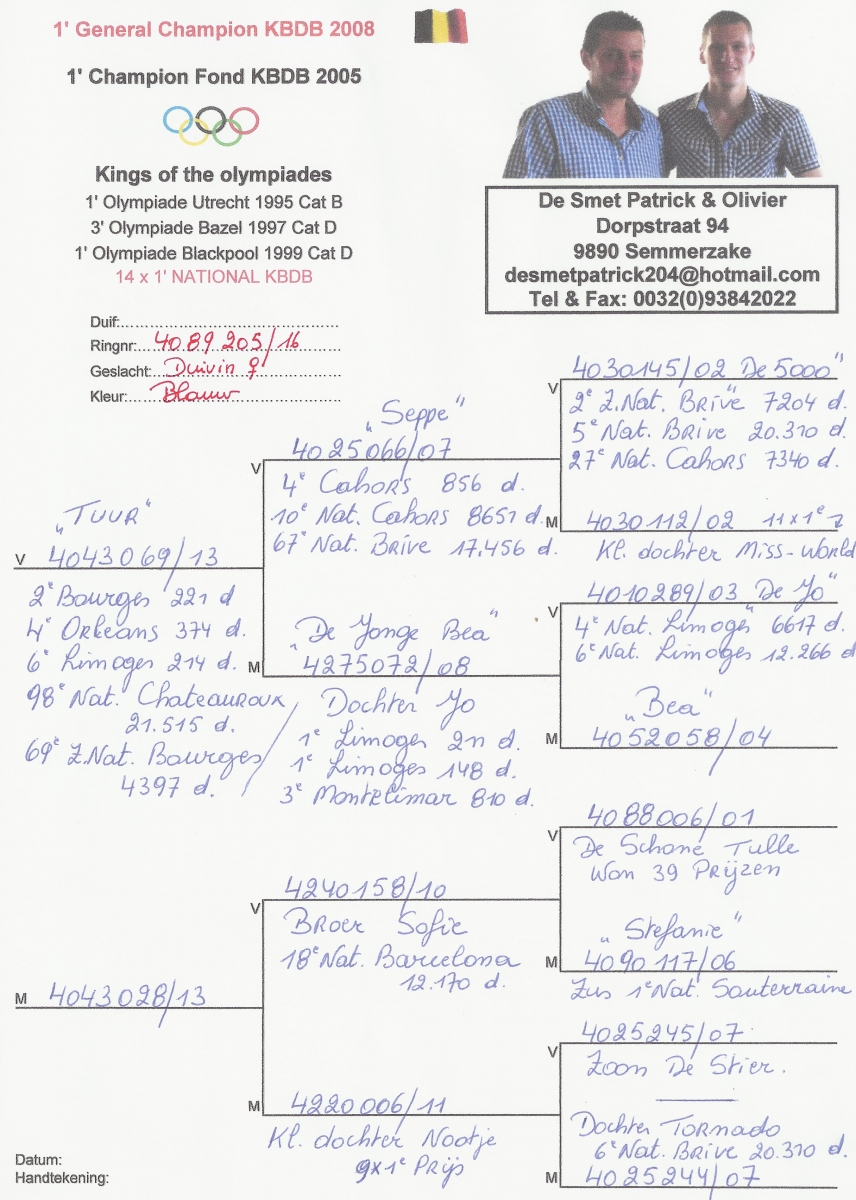 1' General Champion KBDB 2008
1' Champion Fond KBDB 2005
Kings of the olympiades
1' Olympiade Utrecht 1995 Cat B
3' Olympiade Bazel 1997 Cat D
1' Olympiade Blackpool 1999 Cat D
14 x 1' NATIONAL KBDB
De Smet Patrick & Olivier
Dorpstraat 94
9890 Semmerzake
desmetpatrick204@hotmail.com
Tel & Fax: 0032(0)93842022
Duif:
Ringnr: 4089205/16
Geslacht: Duivin ♀
Kleur: Blauw
„TUUR"
V 4043069/13
2e Bourges 221 d
4e Orleans 374 d.
6e Limoges 214 d.
98e Nat. Chateauroux
21.515 d.
69e Z.Nat. Bourges
4397 d.
„Seppe"
V 4025066/07
4e Cahors 856 d.
10e Nat. Cahors 8651 d.
67e Nat. Brive 17.456 d.
„De Jonge Bea"
M 4275072/08
Dochter Jo
1e Limoges 211 d.
1e Limoges 148 d.
3e Montelimar 810 d.
V 4030145/02 De 5000"
2e Z.Nat. Brive 7204 d.
5e Nat. Brive 20.310 d.
27e Nat. Cahors 7340 d.
M 4030112/02 11x1e
Kl. dochter Miss-World
V 4010289/03 De Jo"
4e Nat. Limoges 6617 d.
6e Nat. Limoges 12.266 d
„Bea"
M 4052058/04
M 4043028/13
V 4240158/10
Broer Sofie
18e Nat. Barcelona
12.170 d.
M 4220006/11
Kl. dochter Nootje
9x1e Prijs
V 4088006/01
De Schone Tulle
Won 39 Prijzen
„Stefanie"
M 4090117/06
Zus 1e Nat. Souterraine
V 4025245/07
Zoon De Stier.
Dochter Tornado
6e Nat. Brive 20.310 d.
M 4025244/07
Datum:
Handtekening: